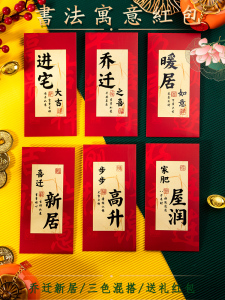 书法寓意红包
进宅
大吉
乔迁
之喜
暖居
如意
喜迁
新居
步步
高升
家肥
屋润
乔迁新居/三色混搭/送礼红包